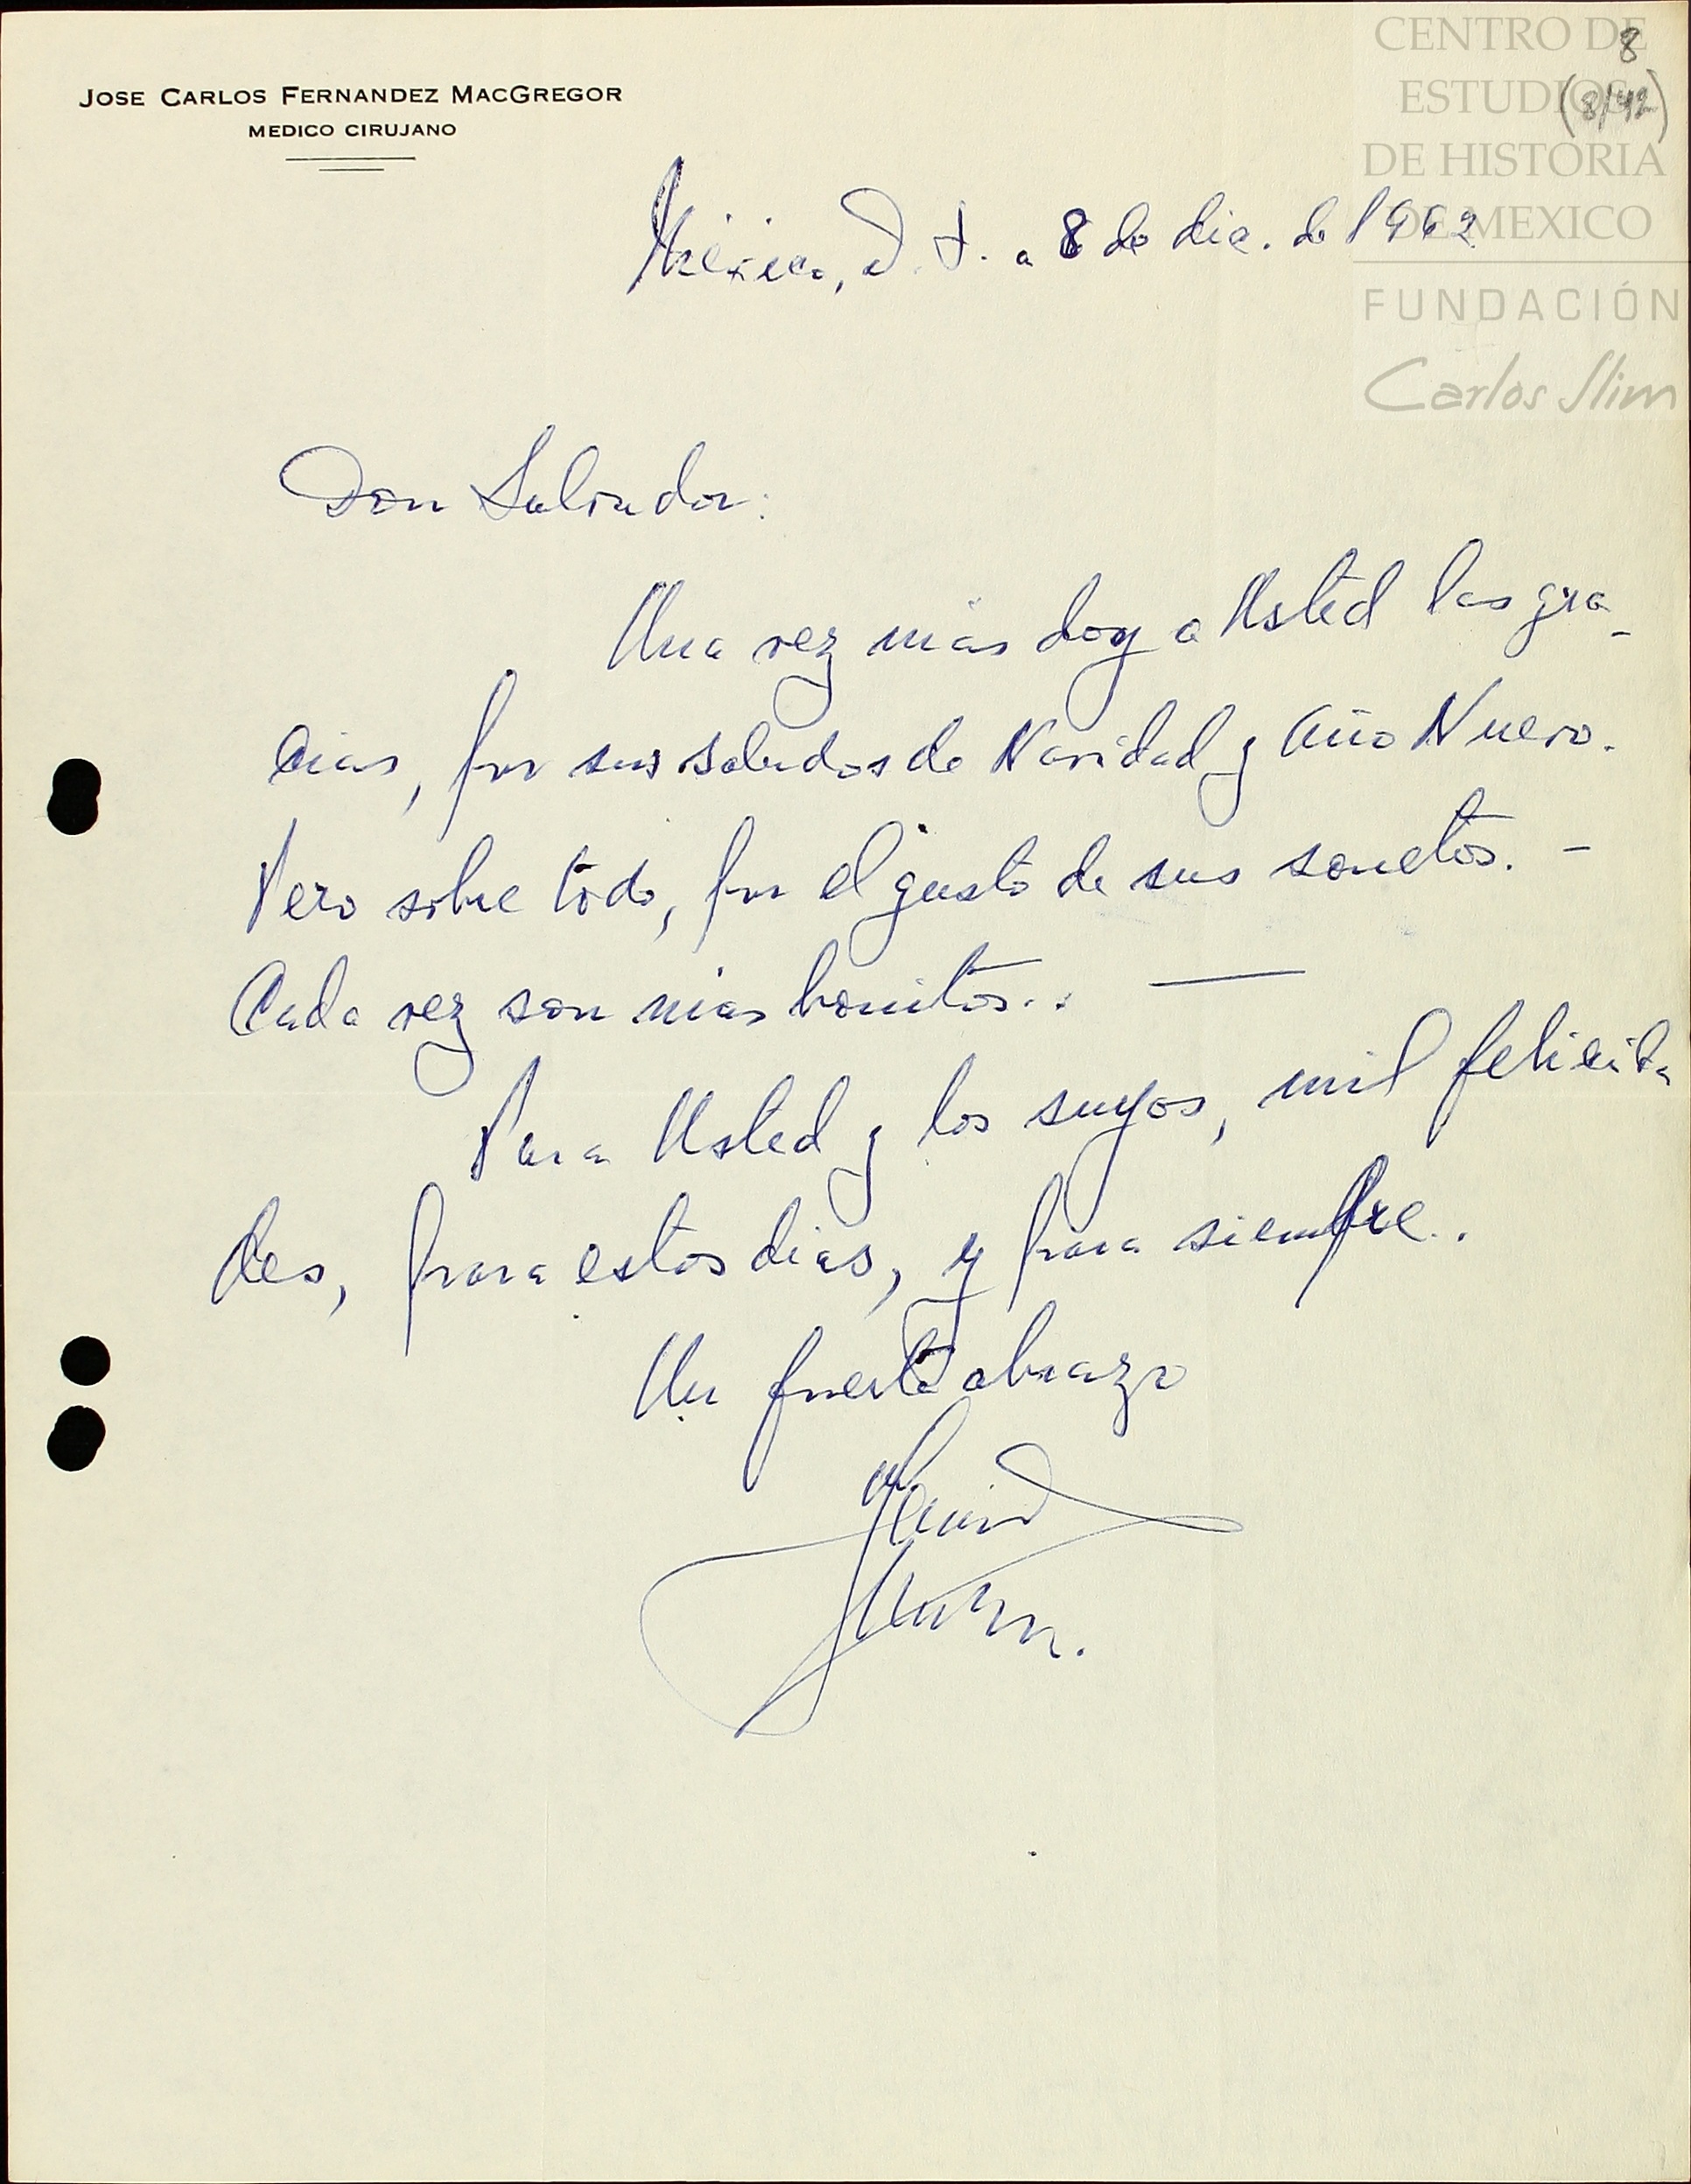 CENTRO DE
ESTUDIOS
DE HISTORIA
DE MEXICO
FUNDACIÓN
Carlos Slim
8
(8/42)
JOSE CARLOS FERNANDEZ MACGREGOR
MEDICO CIRUJANO
México, D. F. a 8 de dic. de 1962
Don Salvador:
Una vez más doy a Usted las gra-
cias, por sus saludos de Navidad y Año Nuevo.
Pero sobre todo, por el gusto de sus sonetos. -
Cada vez son más bonitos..
Para Usted y los suyos, mil felicida
des, para estos dias, y para siempre..
Un fuerte abrazo